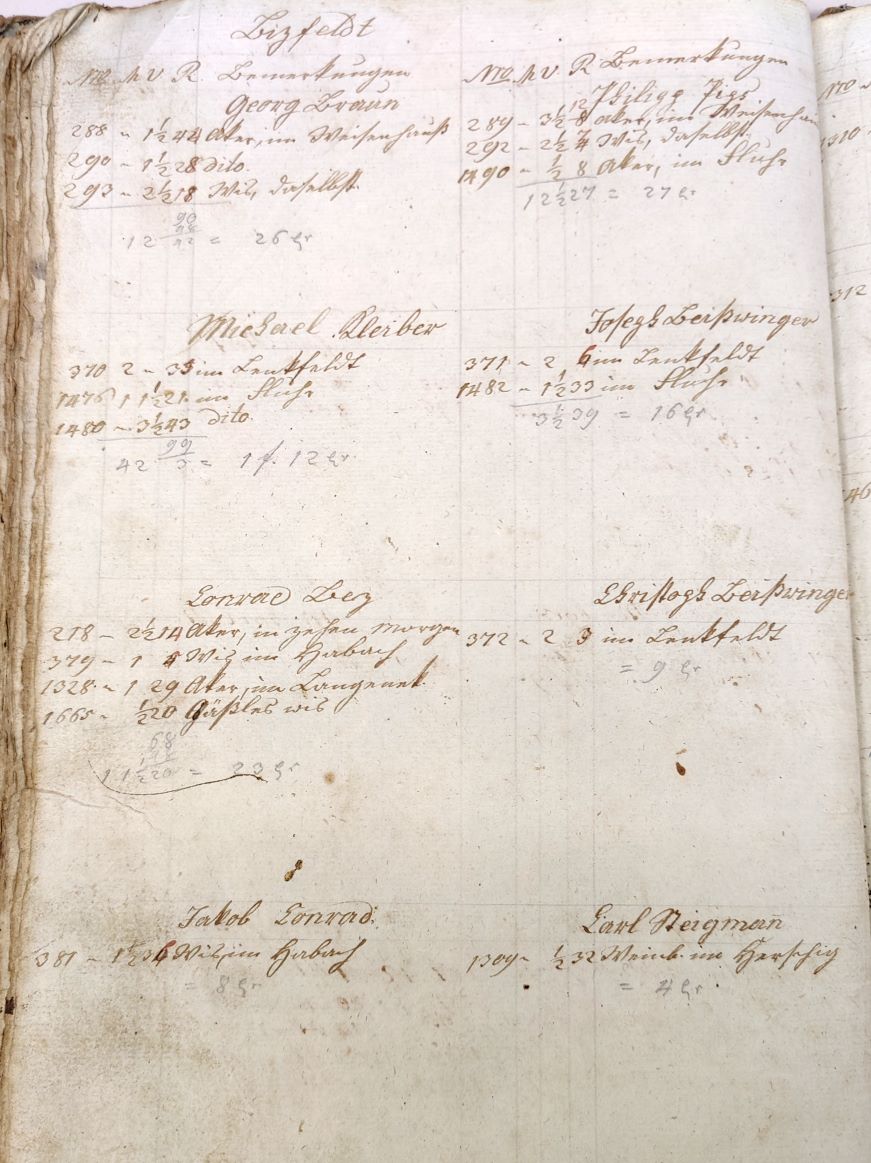 Bizfeldt
No. M V R. Bemerkungen
Georg Braun
288 – 1½ 44 Aker, im Weisenhauß
290 – 1½ 28 dito.
293 – 2½ 18 Wis, daselbst.
12 = 26 xr
Michael Kleiber
370 2 – 35 im Lenkfeldt
1476 1 1½ 21 im Fluhr
1480 – 3½ 43 dito.
99
42 3 = 1 f. 12 xr
Conrad Bez
218 – 2½ 14 Aker, in zehen Morgen
379 – 1 5 Wiß im Habach
1328 – 1 29 Aker, im Langenek
1665 – ½ 20 Gäßles wis
68
11 ½ 20 = 23 xr
Jakob Conrad.
381 – 1½ 36 Wis, im Habach
= 8 xr
No. M V R Bemerkungen
Philipp
289 – 3½ 8 Aker, im Weisenhau
292 – 2½ 4 Wis, daselbst.
1490 – ½ 8 Aker, im Fluhr
12 ½ 27 = 27 xr
Joseph Beißwinger
371 – 2 6 im Lenkfeldt
1482 – 1½ 33 im Fluhr
3½ 39 = 16 xr
Christoph Beißwinger
372 – 2 3 im Lenkfeldt
= 9 xr
Carl Steigman
1309 – ½ 32 Weinb. im Herschig
= 4 xr
No
1310
312
46